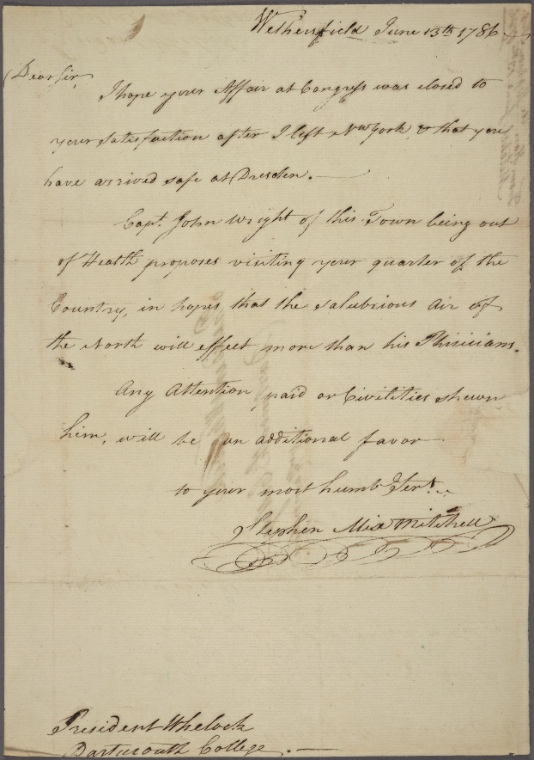 Wethersfield June 13th 1786
Dear Sir,
I hope your Affair at Congress was closed to
your satisfaction after I left N York & that you
have arrived safe at Dresden.—
Capt. John Wright of this Town being out
of Health proposes visiting your quarter of the
Country, in hopes that the salubrious air of
the North will effect more than his Phisicians.
Any Attention paid or Civilities shewn
him, will be an additional favor
to your most humb Servt.
Stephen Mix Mitchell
President Whelock
Dartmouth College.—